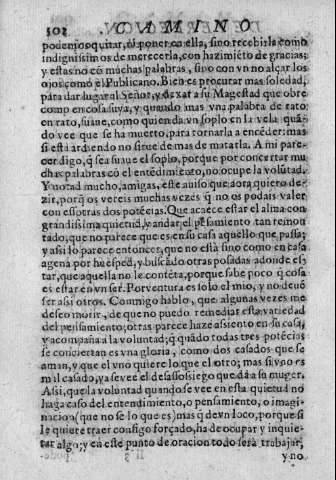 302 CAMINO
podemos quitar, ni poner en ella, sino recebirla como
indignissimos de merecerla, con hazimiẽto de gracias;
y estas no cõ muchas palabras, sino con vn no alçar los
ojos como el Publicano. Bien es procurar mas soledad,
para dar lugar al Señor, y dexar a su Magestad que obre
como en cosa suya, y quando mas vna palabra de rato
en rato, suaue, como quien da vn soplo en la vela quã-
do vee que se ha muerto, para tornarla a encẽder: mas
si està ardiendo no sirue de mas de matarla. A mi pare-
cer digo, q̃ sea suaue el soplo, porque por concertar mu
chas palabras cõ el entẽdimiẽto, no ocupe la volũtad.
Y notad mucho, amigas, este auiso que aora quiero de-
zir, porq̃ os vereis muchas vezes q̃ no os podais valer
con essotras dos potẽcias. Que acaece estar el alma con
grandissima quietud, y andar el pẽsamiento tan remon
tado, que no parece que es en su casa aquello que passa;
y assi lo parece entonces, que no està sino como en casa
agena por huesped, y buscãdo otras posadas adonde es-
tar, que aquella no le contẽta, porque sabe poco q̃ cosa
es estar en vn ser. Por ventura es solo el mio, y no deuẽ
ser assi otros. Conmigo hablo, que algunas vezes me
deseo morir, de que no puedo remediar esta variedad
del pensamiento; otras parece haze assiento en su casa,
y acompaña a la voluntad; q̃ quãdo todas tres potẽcias
se conciertan es vna gloria, como dos casados que se
aman, y que el vno quiere lo que el otro; mas si vno es
mal casado, ya se vee el desasossiego que dà a su muger.
Assi, que la voluntad quando se vee en esta quietud no
haga caso del entendimiento, o pensamiento, o imagi-
nacion (que no se lo que es) mas q̃ de vn loco, porque si
le quiere traer consigo forçado, ha de ocupar y inquie-
tar algo; y en este punto de oracion todo serà trabajar,
y no